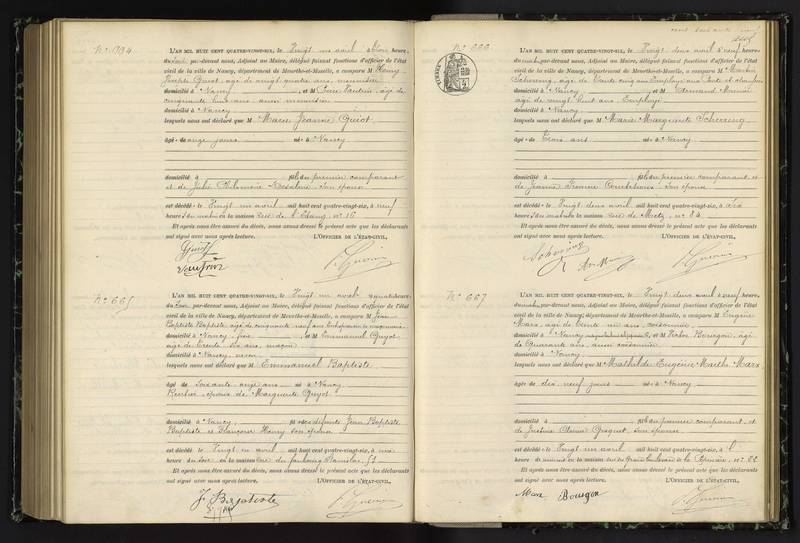 N° 664
L'AN MIL HUIT CENT QUATRE-VINGT-SIX, le Vingt un avril heure,
du soir, par-devant nous, Adjoint au Maire, délégué faisant fonctions d'officier de l'état
civil de la ville de Nancy, département de Meurthe-et-Moselle, a comparu M Henry
Guiot, âgé de vingt quatre ans, menuisier
domicilié à Nancy, et M Pierre âgé de
cinquante ans, aussi menuisier
domicilié à Nancy
lesquels nous ont déclaré que M Marie Jeanne Guiot
âgé e de onze jours né e à Nancy
domicilié à fille du premier comparant
et de Julie son épouse
est décédé e le Vingt un avril mil huit cent quatre-vingt-six, à neuf
heures du matin en la maison rue de l'Étang, n° 16
Et après nous être assuré du décès, nous avons dressé le présent acte que les déclarants
ont signé avec nous après lecture. L'OFFICIER DE L'ÉTAT-CIVIL,
Guiot
N° 665
L'AN MIL HUIT CENT QUATRE-VINGT-SIX, le Vingt un avril à quatre heures,
du soir, par-devant nous, Adjoint au Maire, délégué faisant fonctions d'officier de l'état
civil de la ville de Nancy, département de Meurthe-et-Moselle, a comparu M Jean
Baptiste Baptiste, âgé de cinquante neuf ans Entrepreneur de maçonnerie
domicilié à Nancy, fils, et M Emmanuel Guyot
âgé de Trente six ans, maçon
domicilié à Nancy, neveu
lesquels nous ont déclaré que M Emmanuel Baptiste
âgé de soixante onze ans né à Nancy
Rentier, époux de Marguerite Guyot
domicilié à Nancy, fils de défunts Jean Baptiste
Baptiste et Françoise Henry son épouse
est décédé le Vingt un avril mil huit cent quatre-vingt-six, à une
heure du soir en la maison rue du faubourg Stanislas 51
Et après nous être assuré du décès, nous avons dressé le présent acte que les déclarants
ont signé avec nous après lecture. L'OFFICIER DE L'ÉTAT-CIVIL,
J Baptiste
N° 666
L'AN MIL HUIT CENT QUATRE-VINGT-SIX, le Vingt deux avril à neuf heures,
du matin, par-devant nous, Adjoint au Maire, délégué faisant fonctions d'officier de l'état
civil de la ville de Nancy, département de Meurthe-et-Moselle, a comparu M
Scherring, âgé de Trente cinq ans Employé
domicilié à Nancy, et M Edmond
âgé de vingt huit ans Employé
domicilié à Nancy
lesquels nous ont déclaré que M Marie Marguerite Scherring
âgé e de Trois ans né e à Nancy
domicilié à fille du premier comparant et
de Jeanne son épouse
est décédé e le Vingt deux avril mil huit cent quatre-vingt-six, à six
heures du matin en la maison rue de Metz, n° 84
Et après nous être assuré du décès, nous avons dressé le présent acte que les déclarants
ont signé avec nous après lecture. L'OFFICIER DE L'ÉTAT-CIVIL,
Scherring
N° 667
L'AN MIL HUIT CENT QUATRE-VINGT-SIX, le Vingt deux avril à neuf heures,
du matin, par-devant nous, Adjoint au Maire, délégué faisant fonctions d'officier de l'état
civil de la ville de Nancy, département de Meurthe-et-Moselle, a comparu M Eugène
Marx, âgé de Trente un ans, cordonnier
domicilié à Nancy, et M Victor Bourgon, âgé
de Quarante ans, aussi cordonnier
domicilié à Nancy
lesquels nous ont déclaré que M Mathilde Eugénie Marthe Marx
âgé e de dix neuf jours né e à Nancy
domicilié à fille du premier comparant et
de son épouse
est décédé e le Vingt un avril mil huit cent quatre-vingt-six, à
heures en la maison rue du n° 22
Et après nous être assuré du décès, nous avons dressé le présent acte que les déclarants
ont signé avec nous après lecture. L'OFFICIER DE L'ÉTAT-CIVIL,
Marx Bourgon